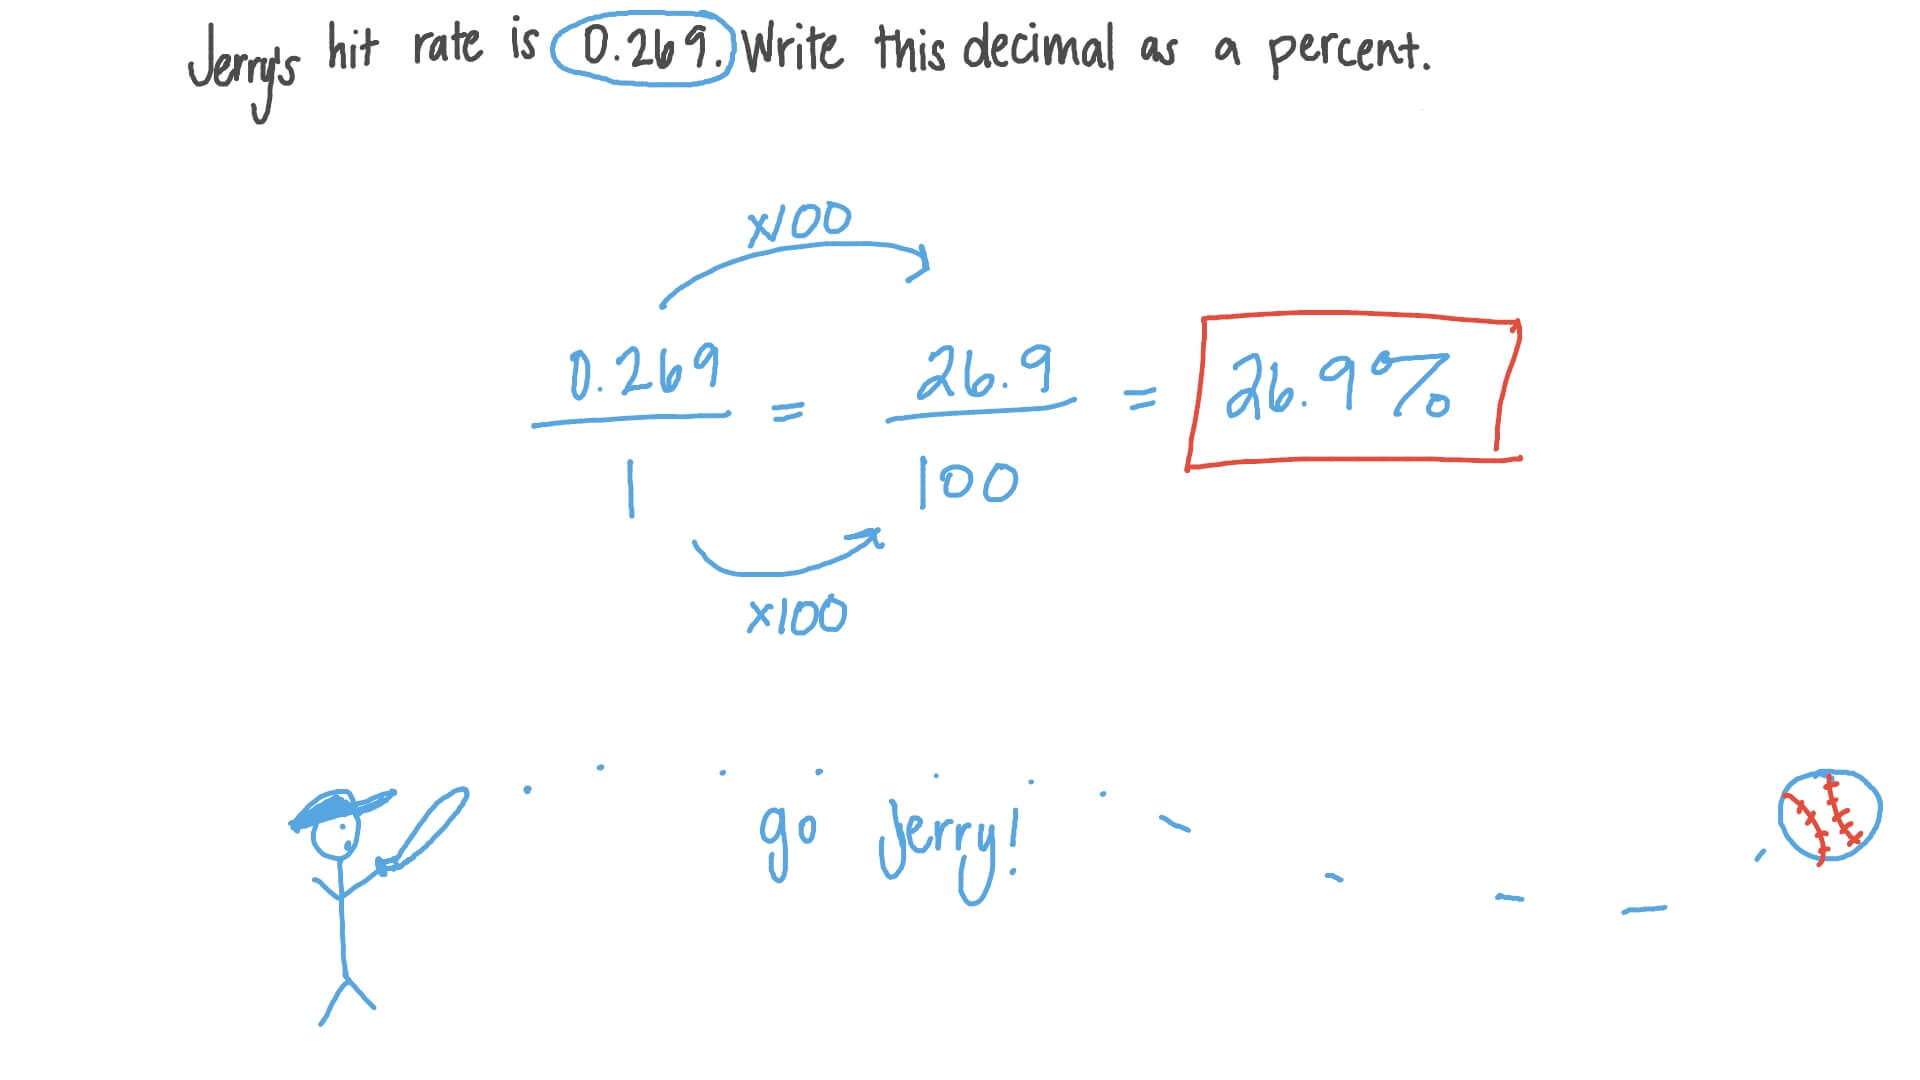 Jerry's hit rate is 0.269. Write this decimal as a percent.
x100
0.269 / 1 = 26.9 / 100 = 26.9%
x100
go Jerry!